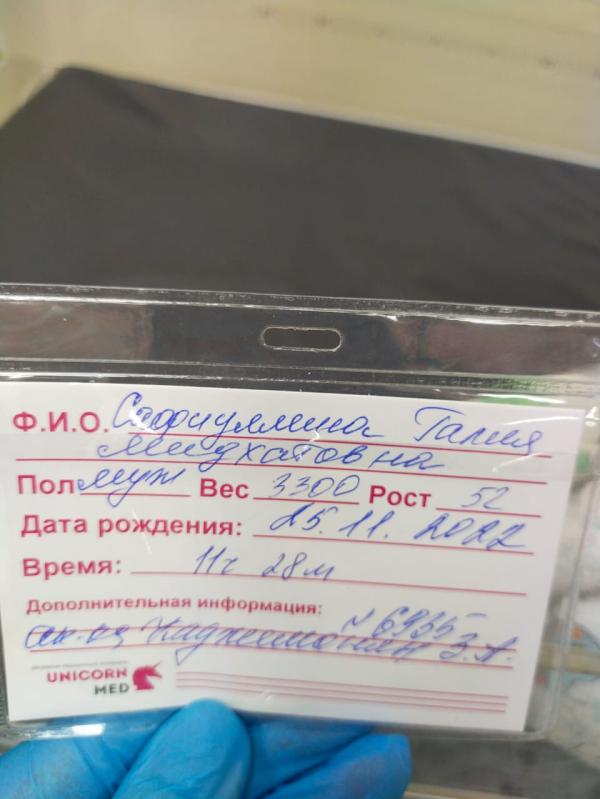 Ф.И.О. Сафиуллина Галия
Мидхатовна
Пол муж Вес 3300 Рост 52
Дата рождения: 25.11.2022
Время: 11ч 28м
Дополнительная информация:
N 6935
ак. З.А.
UNICORN
MED